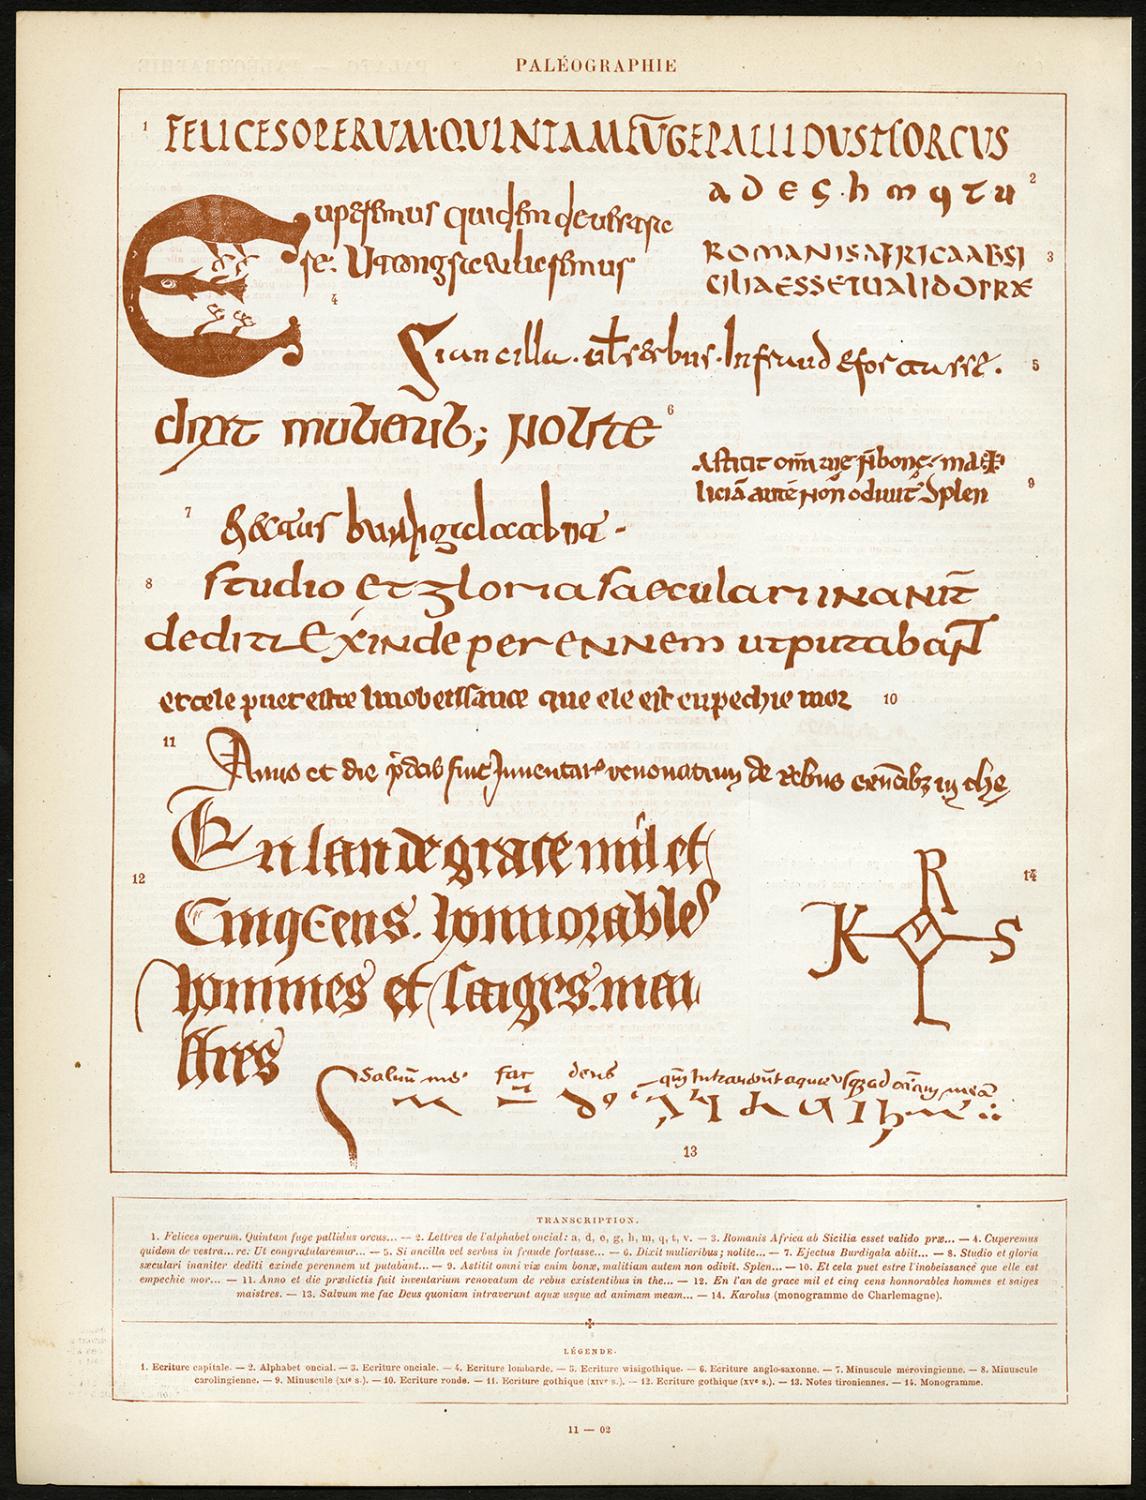 PALÉOGRAPHIE
1
FELICESOPERUM·QUINTAMFUGEPALLIDUSHORCUS
a d e g h m q t u
2
Cuperemus quidem de vestra
re: Ut congr
4
ROMANISAFRICAABSI
3
CILIAESSETUALIDOPRÆ
Si ancilla. vel serbus. In fraud
5
dixit mulierib; nolite
6
Astitit
liciā autē non odiuit Splen
9
7
8
studio et gloria saeculari inanit
dediti Exinde perennem utputabant
et cele puet estre linobeissance que ele est enpechie mor
10
11
Anno et die p̄dcis fuit Inuentar renouatum de rebus in the
En lan de grace mil et
12
Cinq Cens. honnorables
hommes et saiges. mai
stres
R
14
K S
L
Salvū me fac deus
13
TRANSCRIPTION.
1. Felices operum. Quintam fuge pallidus orcus... — 2. Lettres de l'alphabet oncial: a, d, e, g, h, m, q, t, v. — 3. Romanis Africa ab Sicilia esset valido præ... — 4. Cuperemus
quidem de vestra... re: Ut congratularemur... — 5. Si ancilla vel serbus in fraude fortasse... — 6. Dixit mulieribus; nolite... — 7. Ejectus Burdigala abiit... — 8. Studio et gloria
sæculari inaniter dediti exinde perennem ut putabant... — 9. Astitit omni viæ enim bonæ, malitiam autem non odivit. Splen... — 10. Et cela puet estre l'inobeissance que elle est
empechie mor... — 11. Anno et die prædictis fuit inventarium renovatum de rebus existentibus in the... — 12. En l'an de grace mil et cinq cens honnorables hommes et saiges
maistres. — 13. Salvum me fac Deus quoniam intraverunt aquæ usque ad animam meam... — 14. Karolus (monogramme de Charlemagne).
LÉGENDE.
1. Ecriture capitale. — 2. Alphabet oncial. — 3. Ecriture onciale. — 4. Ecriture lombarde. — 5. Ecriture wisigothique. — 6. Ecriture anglo-saxonne. — 7. Minuscule mérovingienne. — 8. Minuscule
carolingienne. — 9. Minuscule (XIe s.). — 10. Ecriture ronde. — 11. Ecriture gothique (XIVe s.). — 12. Ecriture gothique (XVe s.). — 13. Notes tironiennes. — 14. Monogramme.
11 — 02